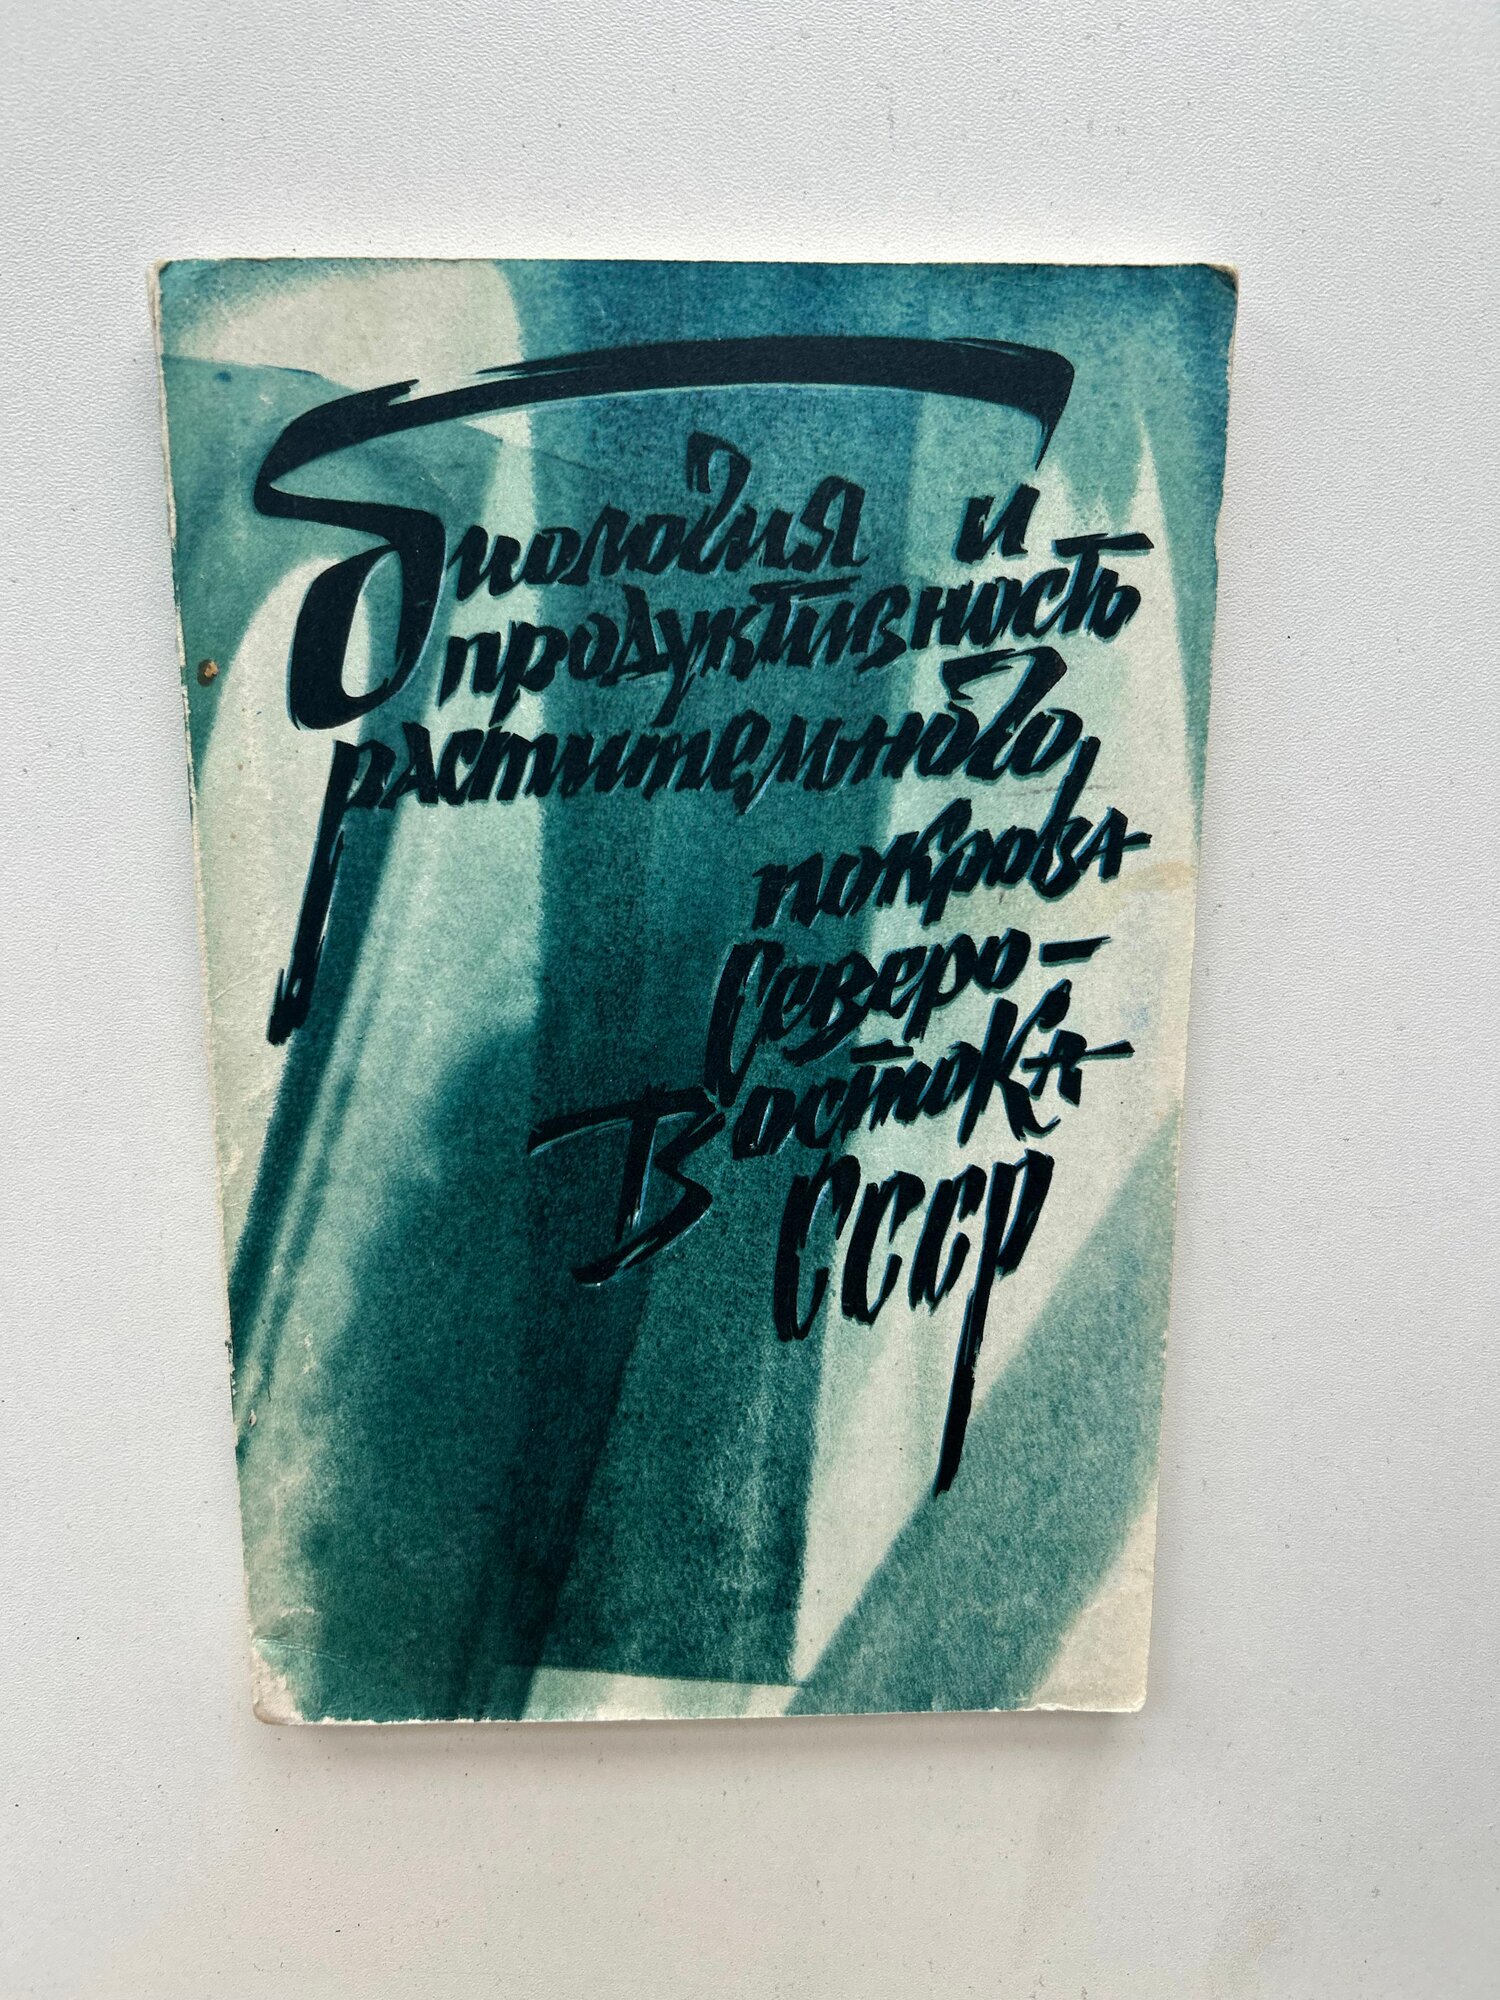 Биология и
продуктивность
растительного
покрова
Северо-
Востока
СССР